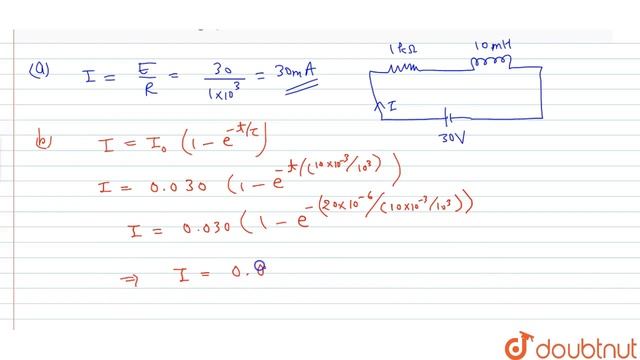 (a) I = E/R = 30/1×10³ = 30mA
1kΩ 10mH
I
30V
(b) I = I₀ (1 − e^(−t/τ))
I = 0.030 (1 − e^(−t/(10×10⁻³/10³)))
I = 0.030 (1 − e^(−(20×10⁻⁶/(10×10⁻³/10³))))
⇒ I = 0.0
doubtnut